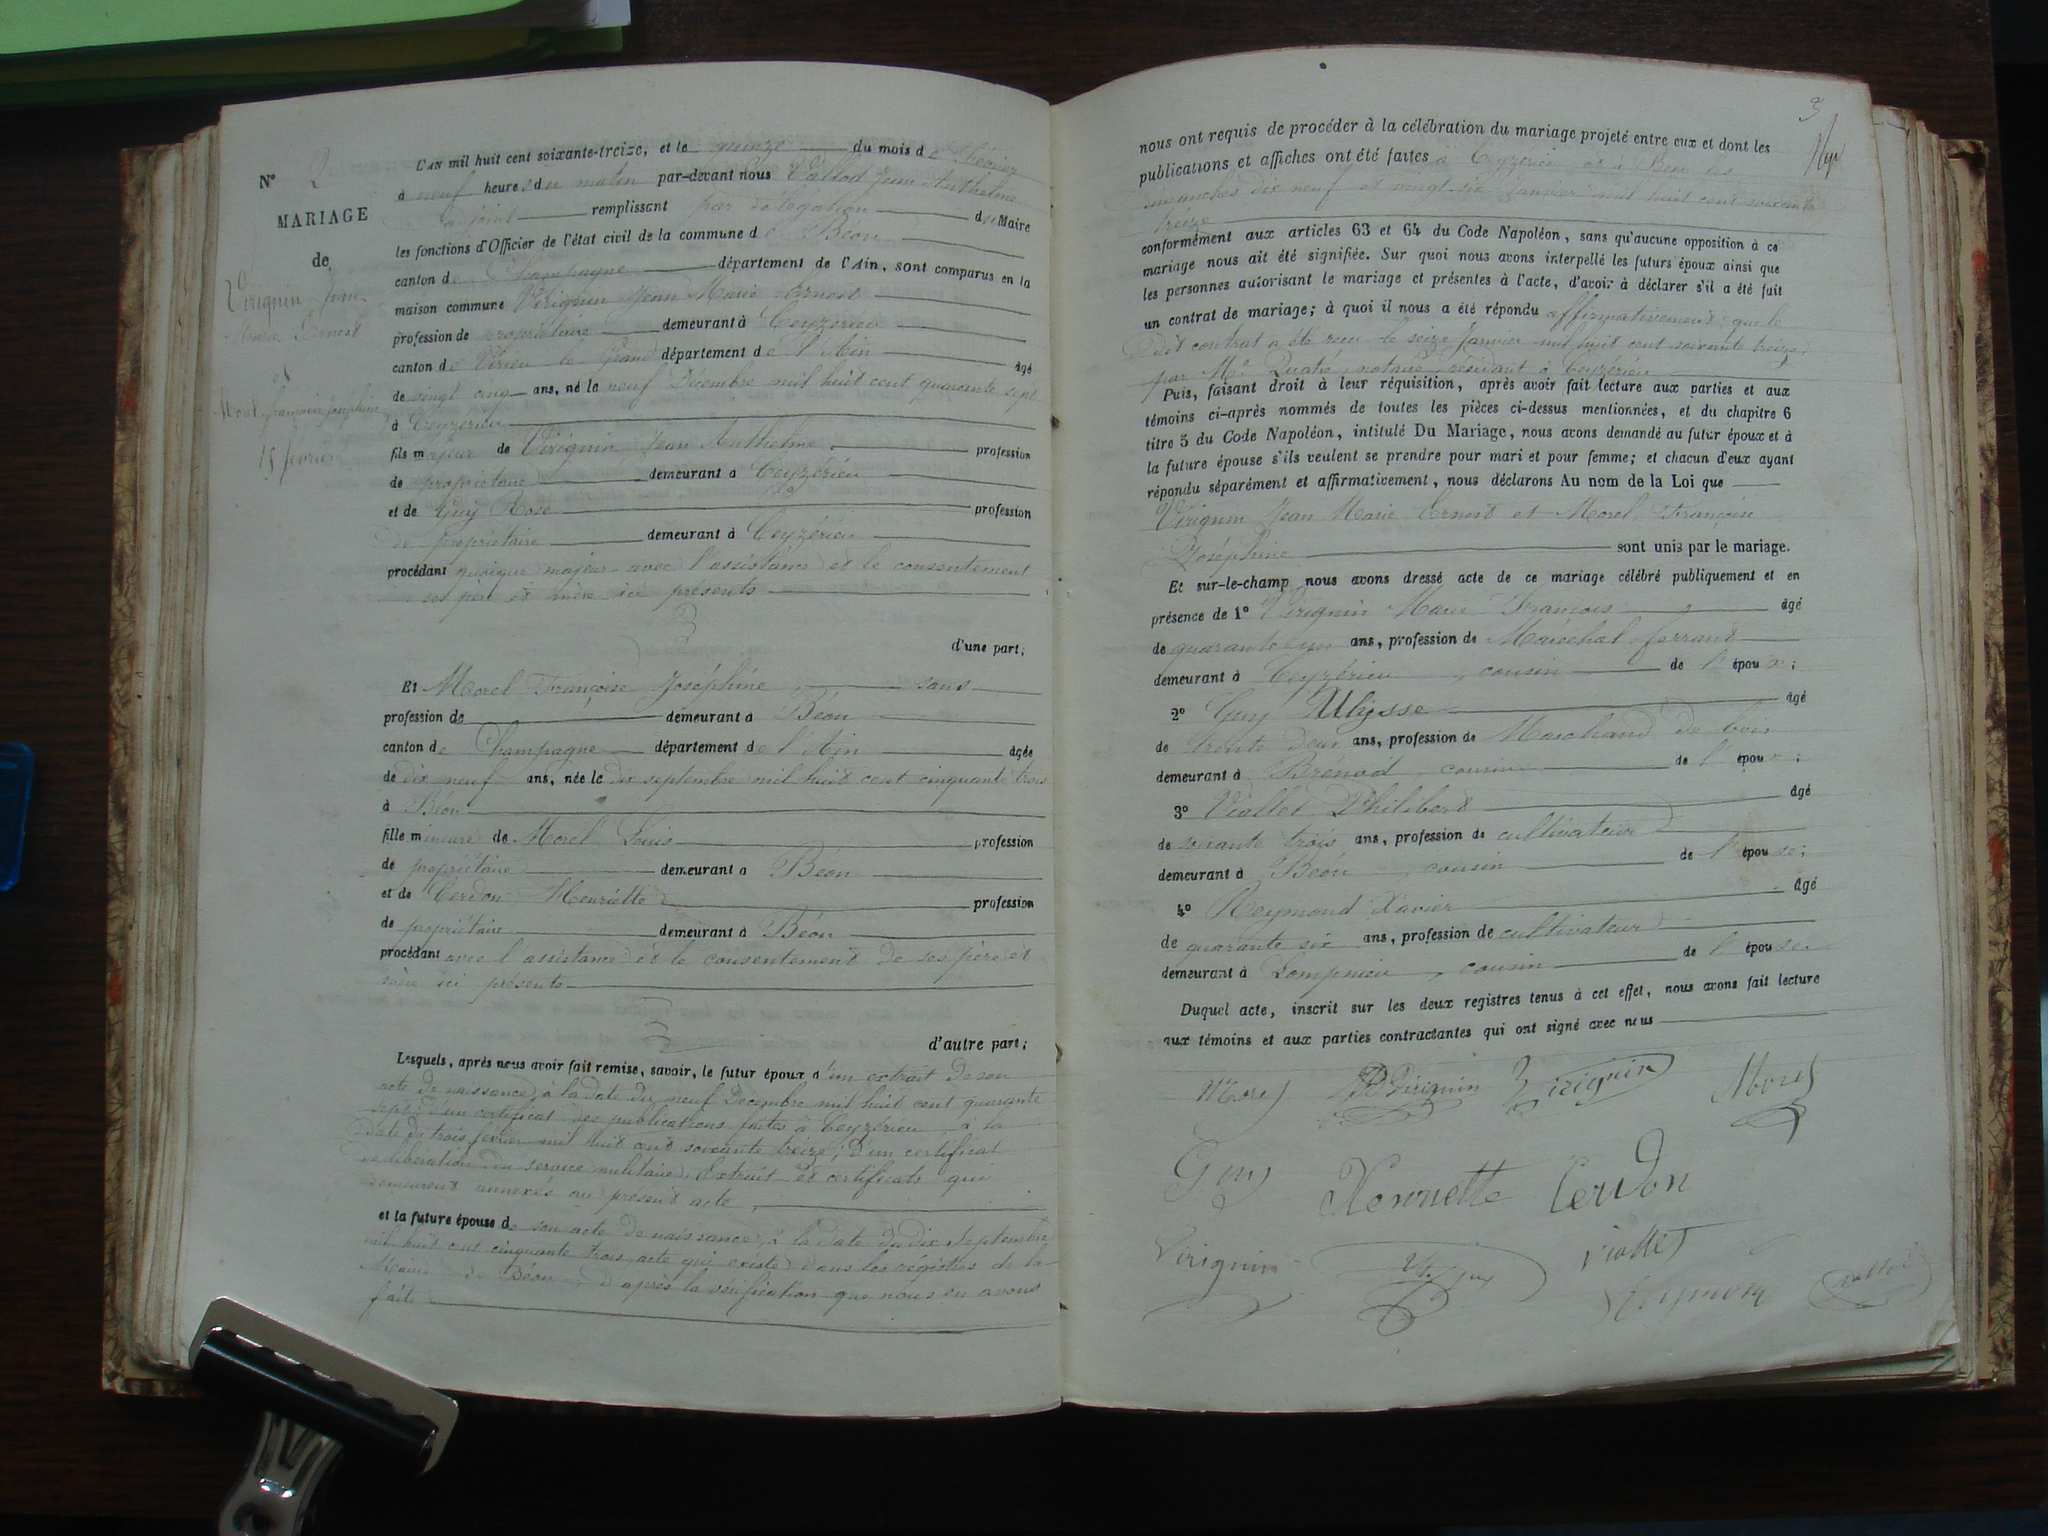 N° 2
MARIAGE
de
Virignin Jean
Marie Ernest
et
Morel françoise Joséphine
15 février
L'AN mil huit cent soixante-treize, et le quinze du mois de février
à neuf heures du matin par-devant nous Vallod Jean Anthelme
adjoint remplissant par délégation du Maire
les fonctions d'Officier de l'état civil de la commune de Béon
canton de Champagne département de l'Ain, sont comparus en la
maison commune Virignin Jean Marie Ernest
profession de propriétaire demeurant à Ceyzérieu
canton de Virieu le Grand département de l'Ain âgé
de vingt cinq ans, né le neuf Décembre mil huit cent quarante sept
à Ceyzérieu
fils majeur de Virignin Jean Anthelme profession
de propriétaire demeurant à Ceyzérieu
et de Guy Rose profession
de propriétaire demeurant à Ceyzérieu
procédant quoique majeur avec l'assistance et le consentement
ses père et mère ici présents
d'une part;
Et Morel Françoise Joséphine sans
profession de demeurant à Béon
canton de Champagne département de l'Ain âgée
de dix neuf ans, née le dix septembre mil huit cent cinquante trois
à Béon
fille mineure de Morel Louis profession
de propriétaire demeurant à Béon
et de Cerdon Henriette profession
de propriétaire demeurant à Béon
procédant avec l'assistance et le consentement de ses père et
mère ici présents
d'autre part;
Lesquels, après nous avoir fait remise, savoir, le futur époux d'un extrait de son
acte de naissance à la date du neuf Décembre mil huit cent quarante
sept; d'un certificat des publications faites à Ceyzérieu à la
date du trois février mil huit cent soixante treize; d'un certificat
de libération du service militaire. Extrait et certificats qui
demeurent annexés au présent acte
et la future épouse de son acte de naissance à la date du dix septembre
mil huit cent cinquante trois acte qui existe dans les régistres de la
Mairie de Béon d'après la vérification que nous en avons
fait.
3
nous ont requis de procéder à la célébration du mariage projeté entre eux et dont les
publications et affiches ont été faites à Ceyzérieu et à Béon les
dimanches dix neuf et vingt six Janvier mil huit cent soixante
treize
conformément aux articles 63 et 64 du Code Napoléon, sans qu'aucune opposition à ce
mariage nous ait été signifiée. Sur quoi nous avons interpellé les futurs époux ainsi que
les personnes autorisant le mariage et présentes à l'acte, d'avoir à déclarer s'il a été fait
un contrat de mariage; à quoi il nous a été répondu affirmativement; que le
dit contrat a été reçu le seize Janvier mil huit cent soixante treize
par Me notaire résidant à Ceyzérieu
Puis, faisant droit à leur réquisition, après avoir fait lecture aux parties et aux
témoins ci-après nommés de toutes les pièces ci-dessus mentionnées, et du chapitre 6
titre 5 du Code Napoléon, intitulé Du Mariage, nous avons demandé au futur époux et à
la future épouse s'ils veulent se prendre pour mari et pour femme; et chacun d'eux ayant
répondu séparément et affirmativement, nous déclarons Au nom de la Loi que
Virignin Jean Marie Ernest et Morel Françoise
Joséphine sont unis par le mariage.
Et sur-le-champ nous avons dressé acte de ce mariage célébré publiquement et en
présence de 1° Virignin Marie François âgé
de quarante ans, profession de Maréchal ferrant
demeurant à Ceyzérieu, cousin de l'époux;
2° Guy Ulysse âgé
de trente deux ans, profession de Marchand de bois
demeurant à Brénod, cousin de l'époux;
3° Viallet Philibert âgé
de soixante trois ans, profession de cultivateur
demeurant à Béon, cousin de l'épouse;
4° Reymond Xavier âgé
de quarante six ans, profession de cultivateur
demeurant à Lompnieu, cousin de l'épouse.
Duquel acte, inscrit sur les deux registres tenus à cet effet, nous avons fait lecture
aux témoins et aux parties contractantes qui ont signé avec nous
Morel Virignin Virignin Morel
Guy Henriette Cerdon
Virignin Guy Viallet
Reymond Vallod